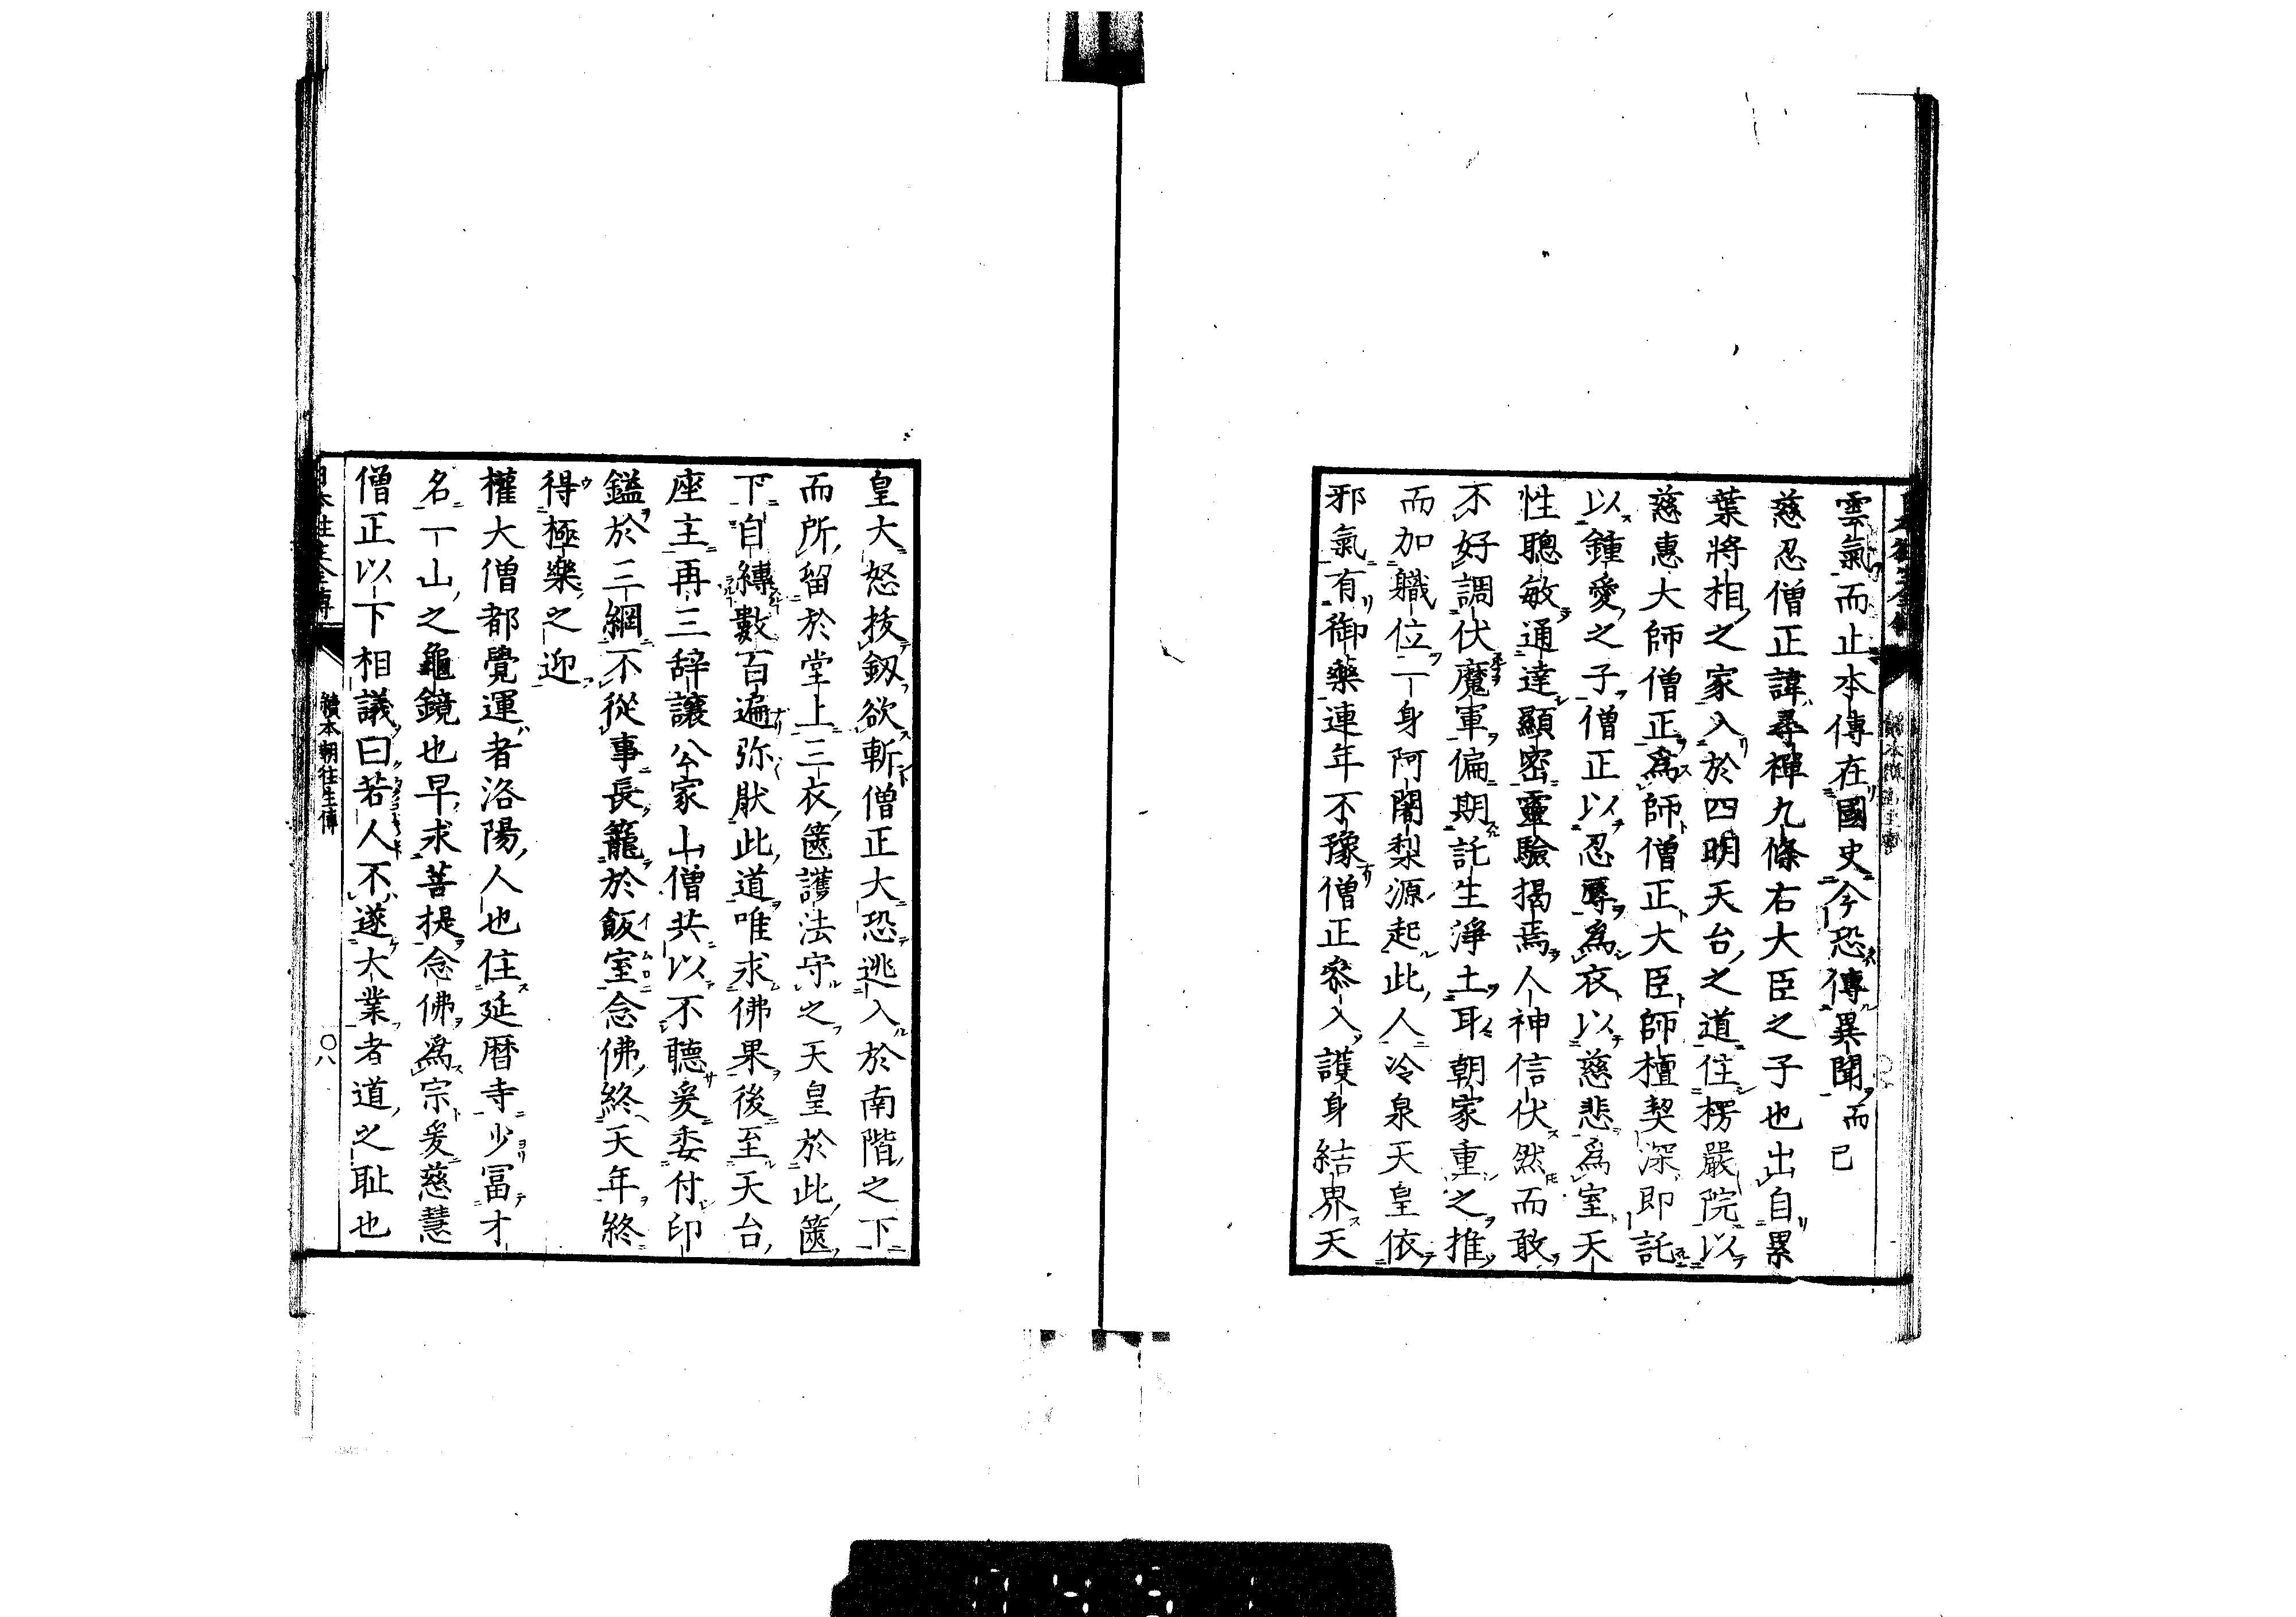 雲氣而止本傳在國史今恐傳異聞而已
慈忍僧正諱尋禪九條右大臣之子也出自累
葉將相之家入於四明天台之道住楞嚴院以
慈惠大師僧正爲師僧正大臣師檀契深即託
以鍾愛之子僧正以忍辱爲衣以慈悲爲室天
性聰敏通達顯密靈驗揭焉人神信伏然而敢
不好調伏魔軍偏期託生淨土耳朝家重之推
而加職位一身阿闍梨源起此人冷泉天皇依
邪氣有御藥連年不豫僧正參入護身結界天
皇大怒拔釼欲斬僧正大恐逃入於南階之下
而所留於堂上三衣篋護法守之天皇於此篋
下自縛數百遍弥猒此道唯求佛果後至天台
座主再三辞讓公家山僧共以不聽爰委付印
鎰於三綱不從事長籠於飯室念佛終天年終
得極樂之迎
權大僧都覺運者洛陽人也住延暦寺少冨才
名一山之龜鏡也早求菩提念佛爲宗爰慈慧
僧正以下相議曰若人不遂大業者道之耻也
日本往生全傳
續本朝往生傳
〇八